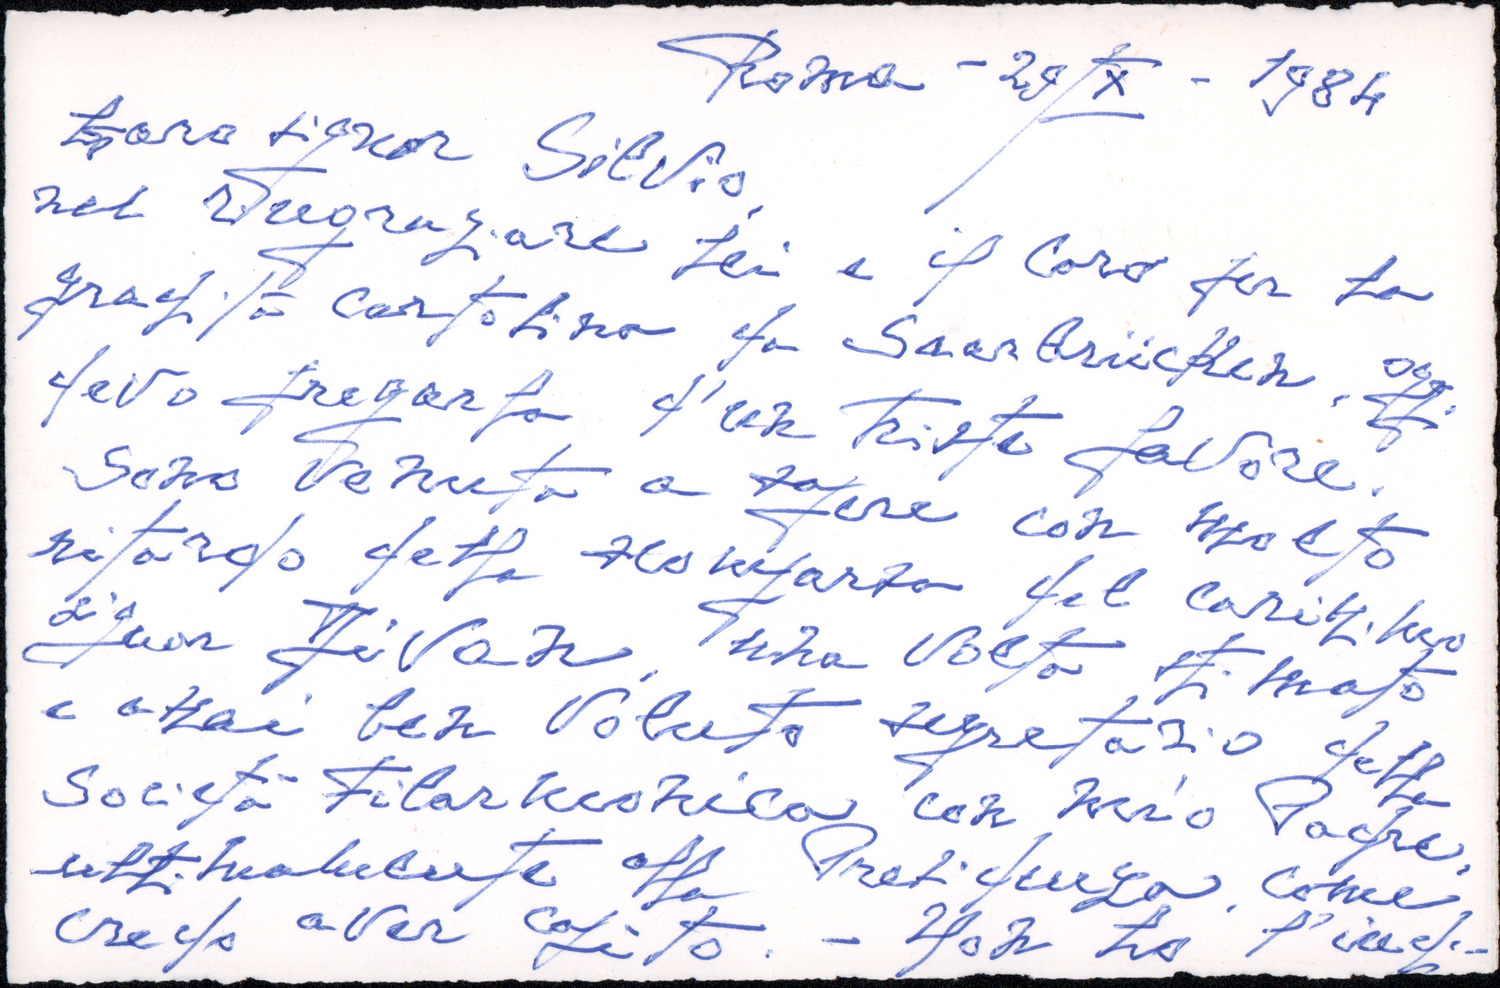 Roma - 29/IX - 1984
Caro signor Silvio,
nel ringraziare Lei e il Coro per la
gradita cartolina da Saarbrücken, oggi
devo pregarla d'un triste favore.
Sono venuta a sapere con molto
ritardo della scomparsa del carissimo
signor una volta stimato
e assai ben voluto segretario della
Società Filarmonica con mio Padre,
ultimamente alla Presidenza, come
credo aver capito. - Non ho l'indi-